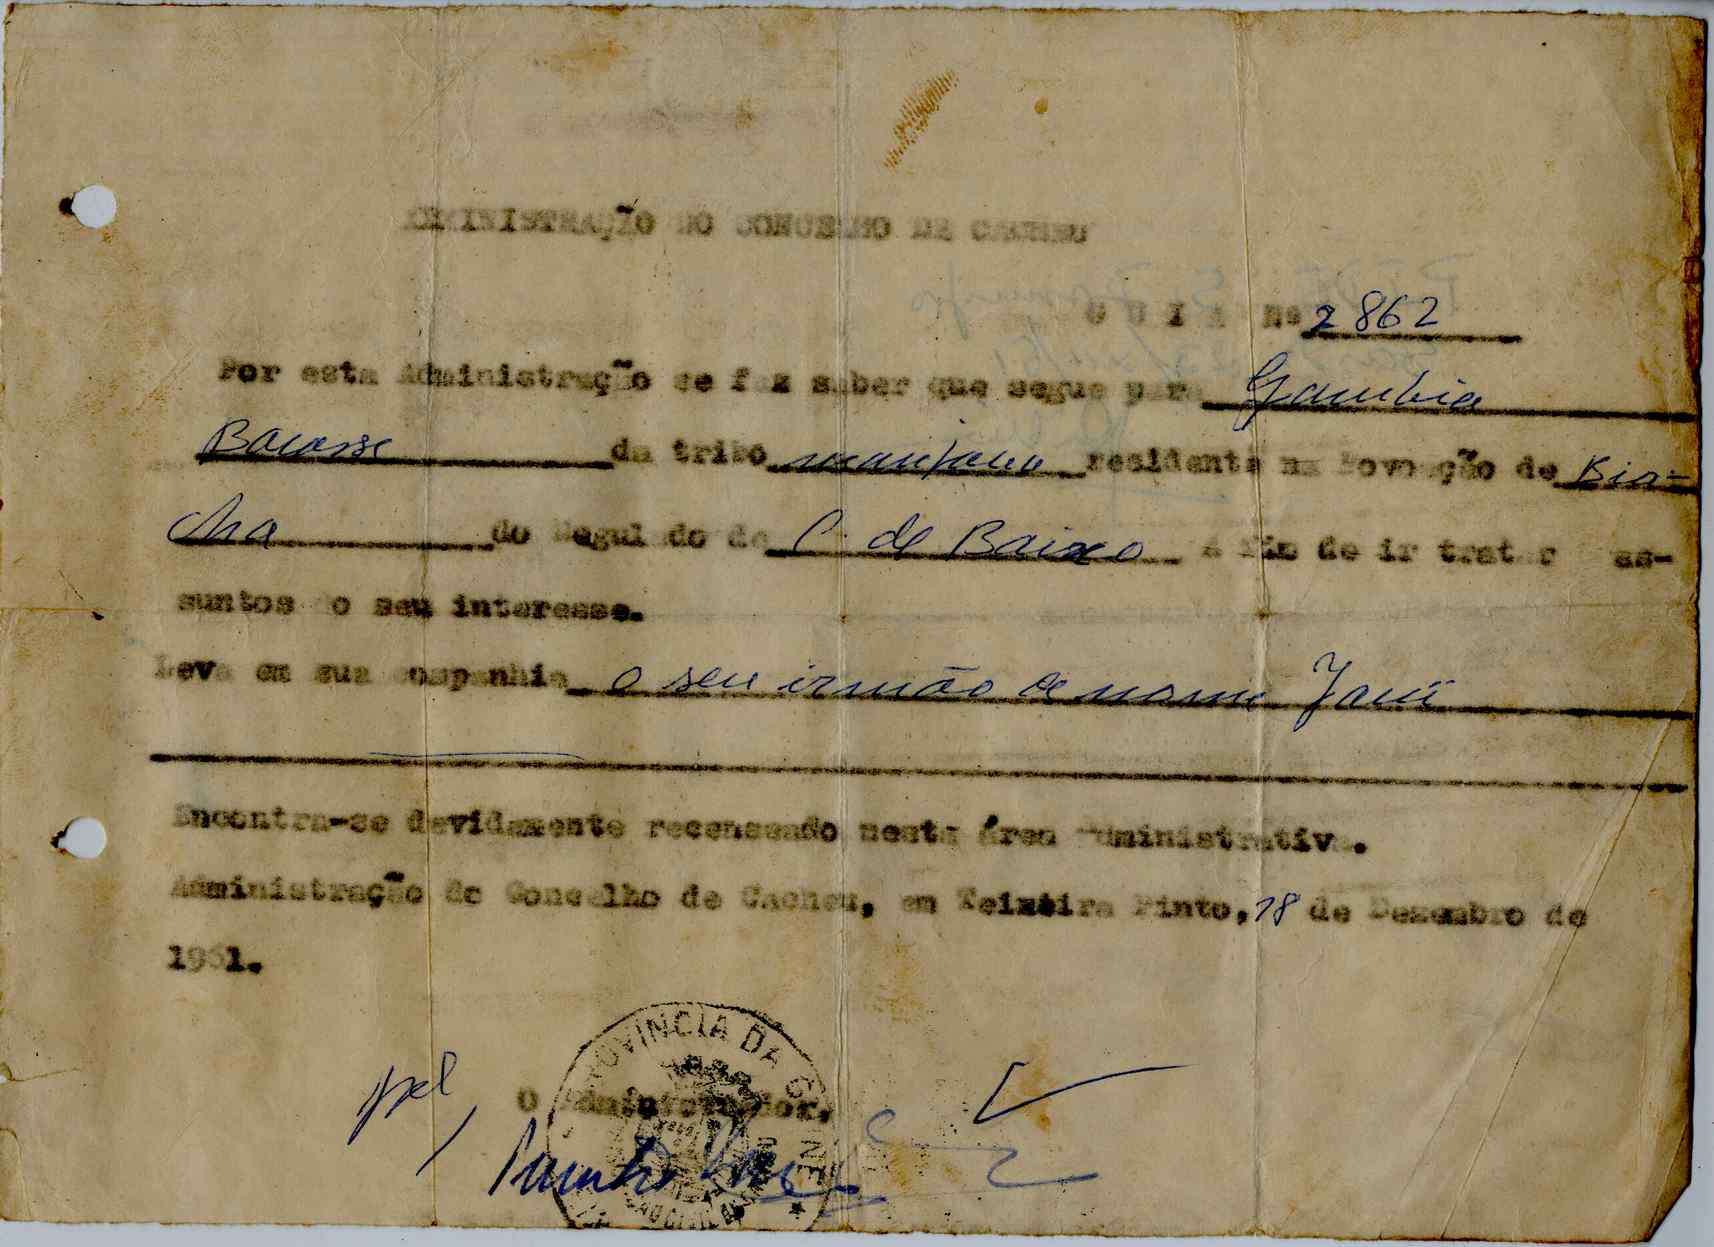 ADMINISTRAÇÃO DO CONCELHO DE CACHEU
G U I A Nº 2862
Por esta Administração se faz saber que segue para Gambia
da tribo manjaca residente na Povoação de Bia-
cha do Regulado de C. de Baixo A fim de ir tratar as-
suntos do seu interesse.
Leva em sua companhia o seu irmão de nome
Encontra-se devidamente recenseado nesta área administrativa.
Administração do Concelho de Cacheu, em Teixeira Pinto, 18 de Dezembro de
1961.
PROVÍNCIA DA GUINÉ
pel,
O Administrador,